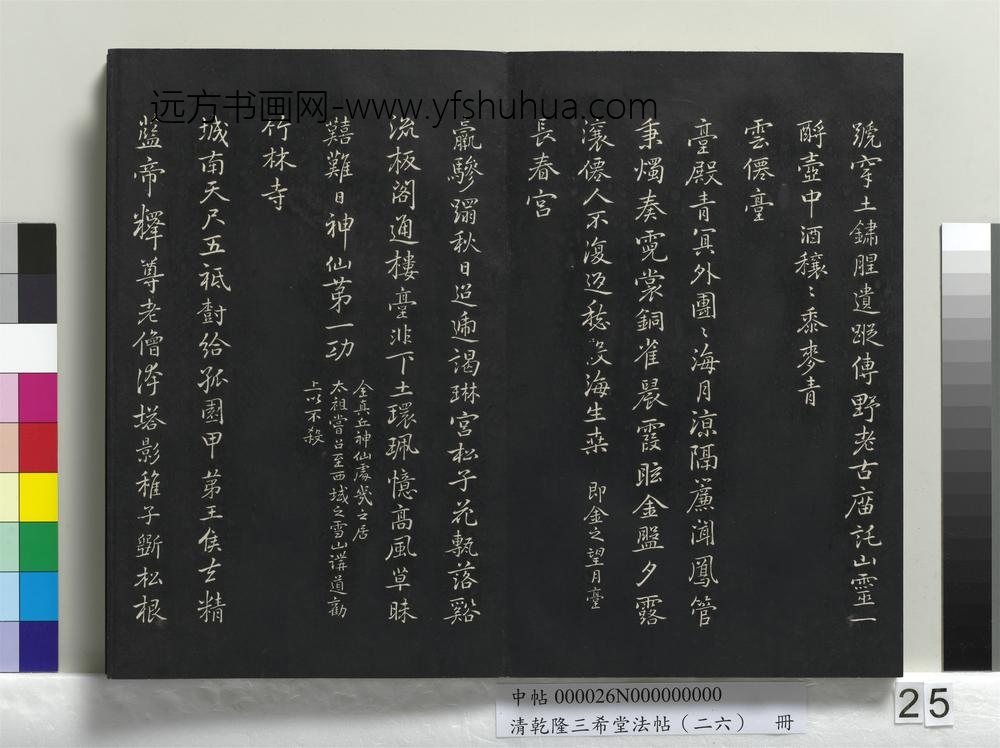 號穿土鏽腥遺蹤傳野老古廟託山靈一
酹壺中酒穰〻黍麥青
雲僊臺
臺殿青冥外團〻海月涼隔簾聞鳳管
秉燭奏霓裳銅雀晨霞眩金盤夕露
瀼僊人不復返愁海生桑
即金之望月臺
長春宮
羸驂躡秋日迢遞謁琳宮松子花甎落谿
流板閣通樓臺非下土環珮憶高風草昧
囏難日神仙苐一功
全真丘神仙處幾之居
太祖嘗召至西域之雪山講道勸
上以不殺
竹林寺
城南天尺五祇樹給孤園甲苐王侯去精
藍帝釋尊老僧浮塔影稚子斲松根
远方书画网-www.yfshuhua.com
中帖 000026N000000000
清乾隆三希堂法帖（二六） 冊
25